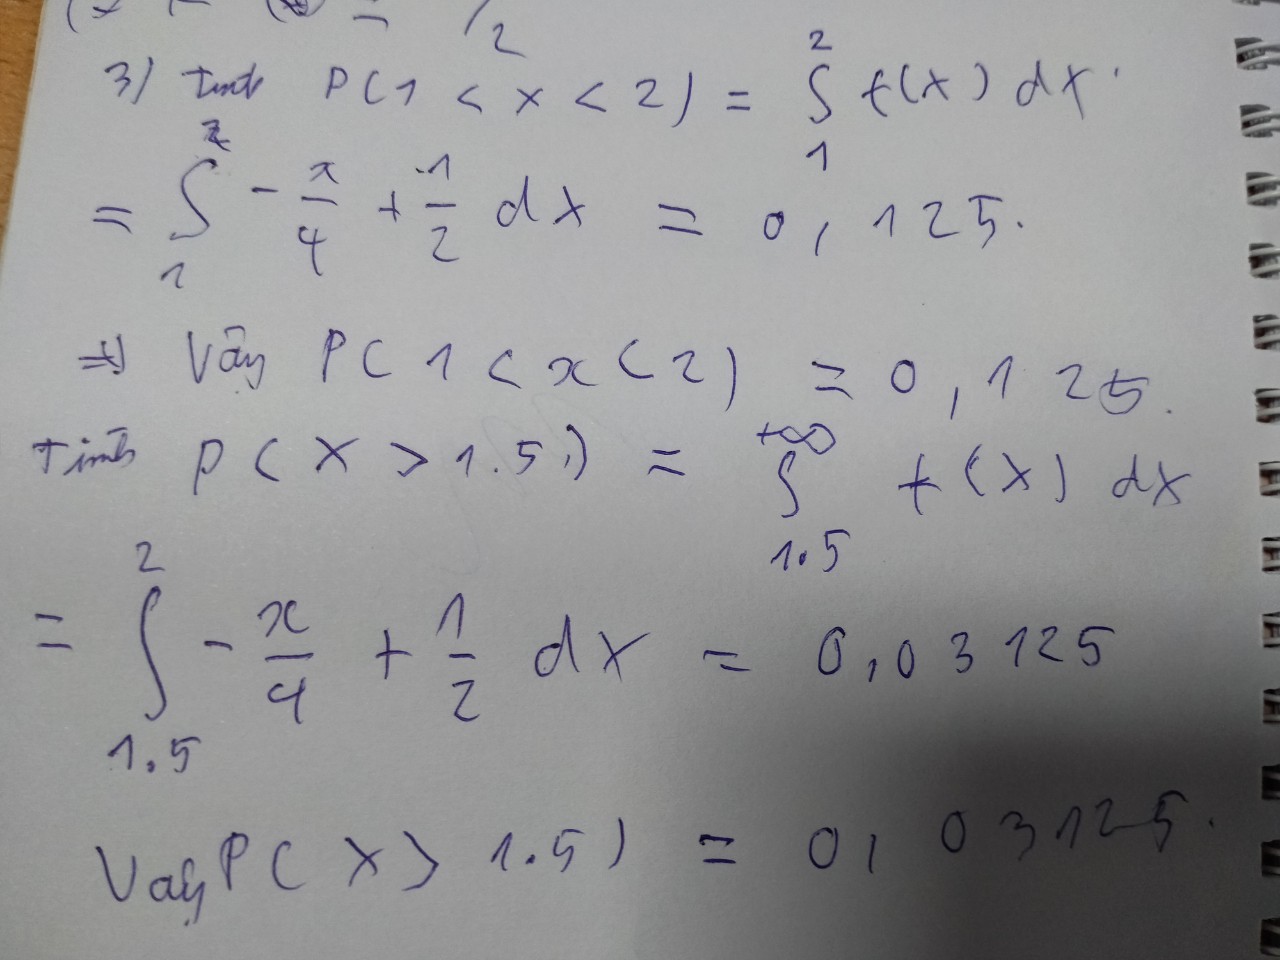 3) tính P(1 < x < 2) = ∫₁² f(x) dx.
= ∫₁² - x/4 + 1/2 dx = 0,125.
=> Vậy P(1 < x < 2) = 0,125.
Tính P(X > 1.5) = ∫₁.₅^{+∞} f(x) dx
= ∫₁.₅² - x/4 + 1/2 dx = 0,03125
Vậy P(X > 1.5) = 0,03125.